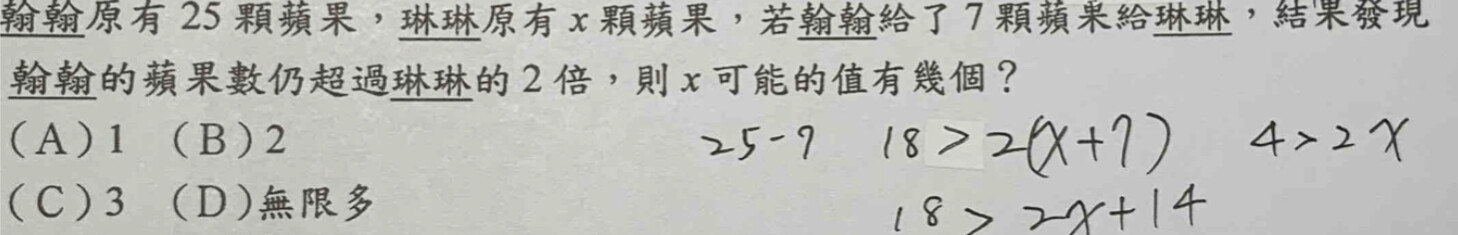 翰翰原有 25 顆蘋果，琳琳原有 x 顆蘋果，若翰翰給了 7 顆蘋果給琳琳，結果發現
翰翰的蘋果數仍超過琳琳的 2 倍，則 x 可能的值有幾個？
（A）1 （B）2
（C）3 （D）無限多
25-7 18>2(x+7) 4>2x
18>2x+14